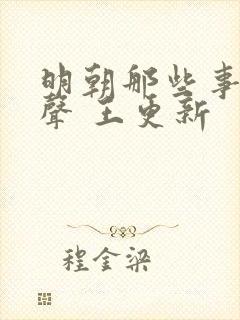 明朝那些事
聲 王更新
程金梁